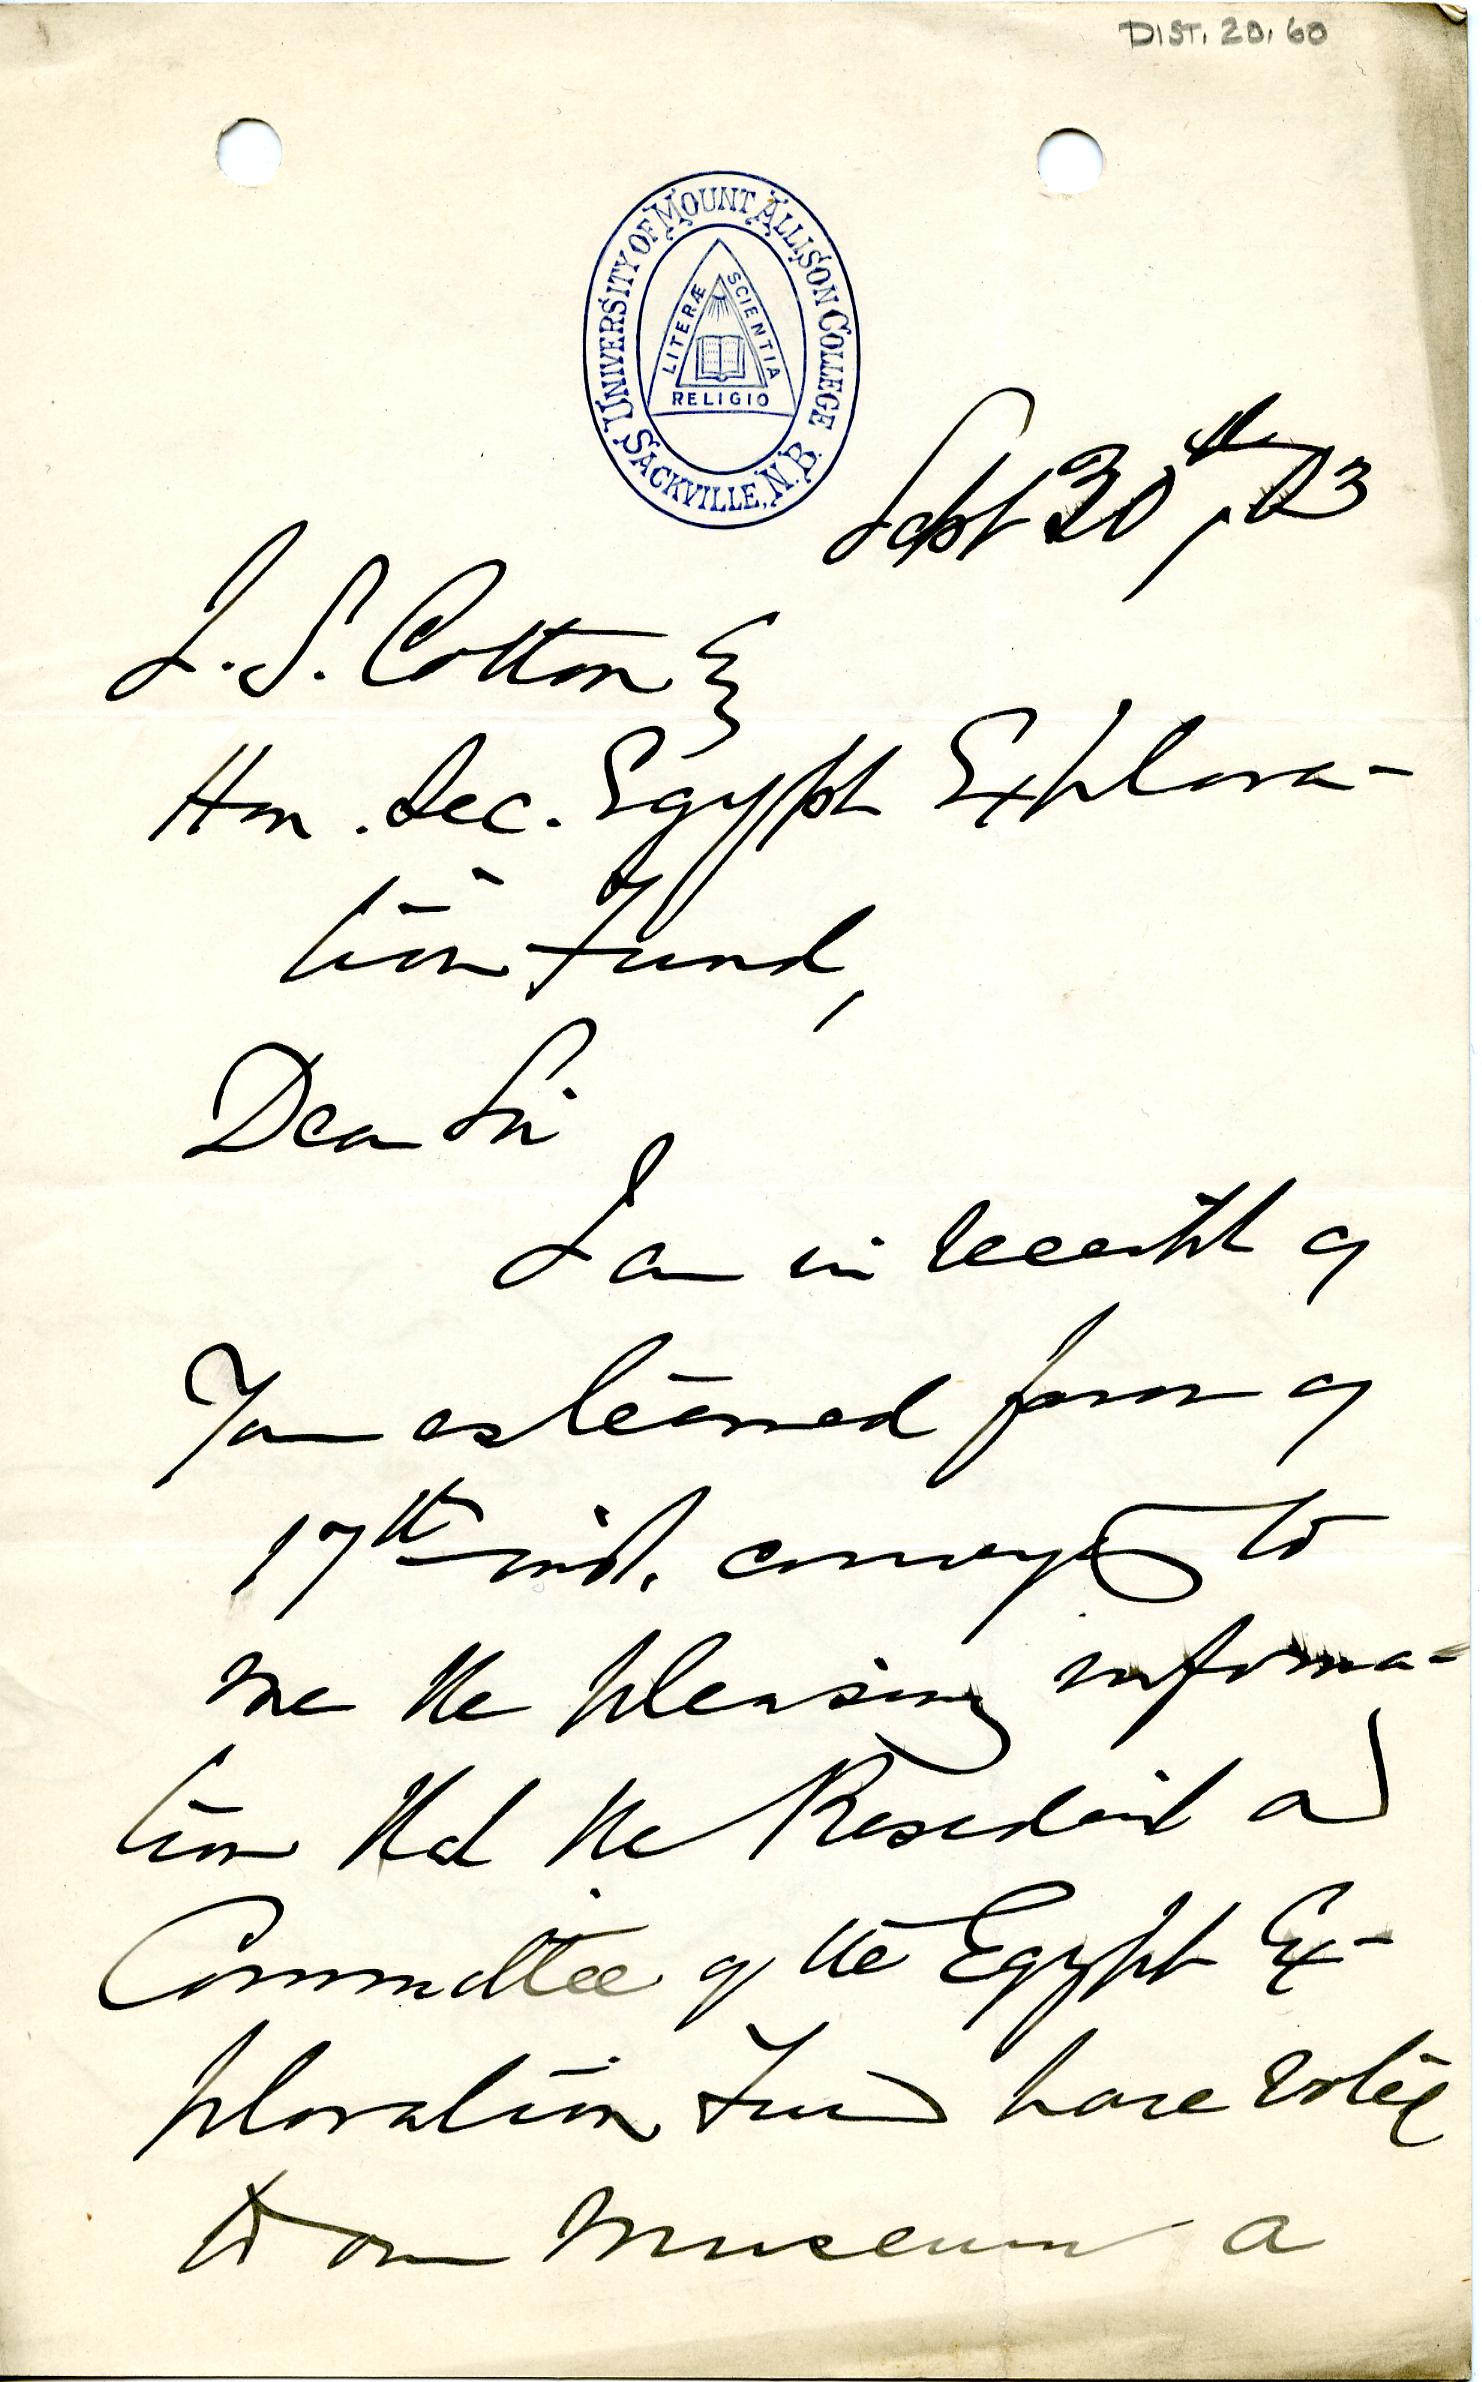 DIST. 20.60
UNIVERSITY OF MOUNT ALLISON COLLEGE
SACKVILLE, N.B.
LITERÆ SCIENTIA
RELIGIO
Sept 30th, 03
J. S. Cotton
Hon. Sec. Egypt Explora-
tion Fund,
Dear Sir
I am in receipt of
Your esteemed favor of
17th inst. conveying to
me the pleasing informa-
tion that the President and
Committee of the Egypt Ex-
ploration Fund have voted
to our Museum a